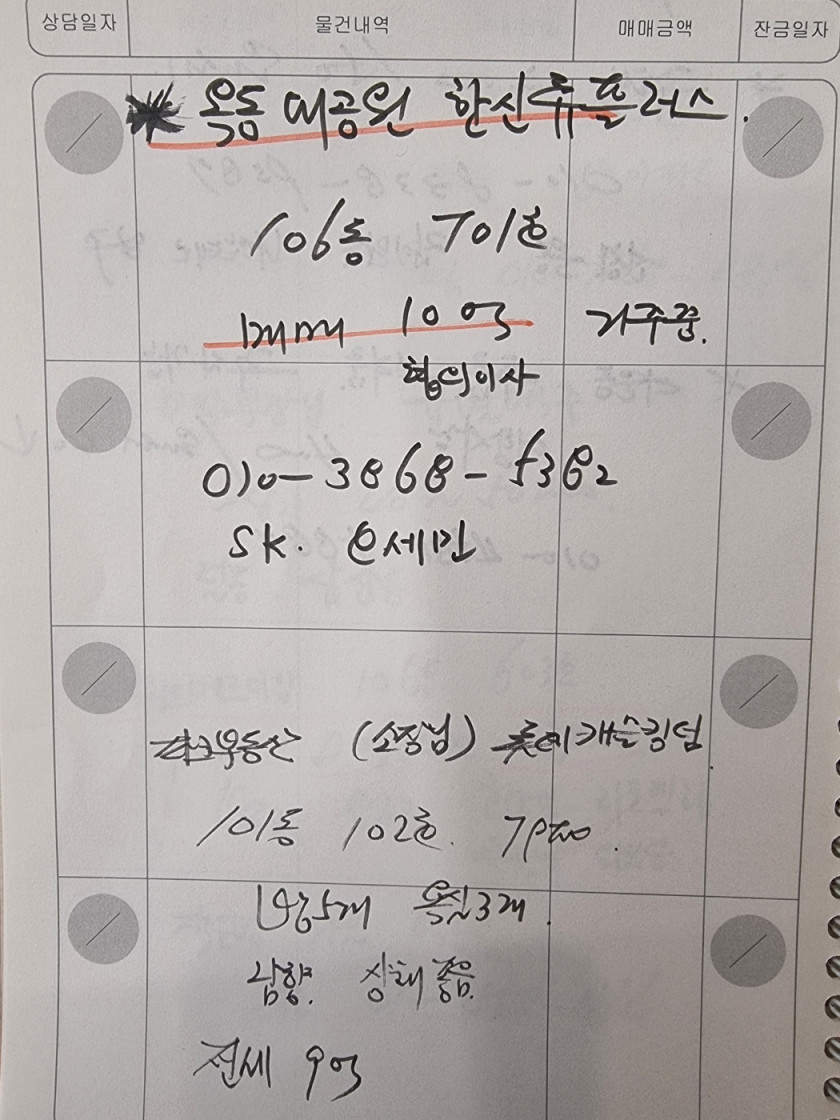 상담일자 물건내역 매매금액 잔금일자
옥동 대공원 한신휴플러스.
106동 701호
매매 10억 거주중.
협의이사
010-3868-5382
SK. 윤세민
부동산 (소장님) 롯데캐슬킹덤
101동 102호.
방5개 욕실3개.
남향. 상태 좋음.
전세 9억